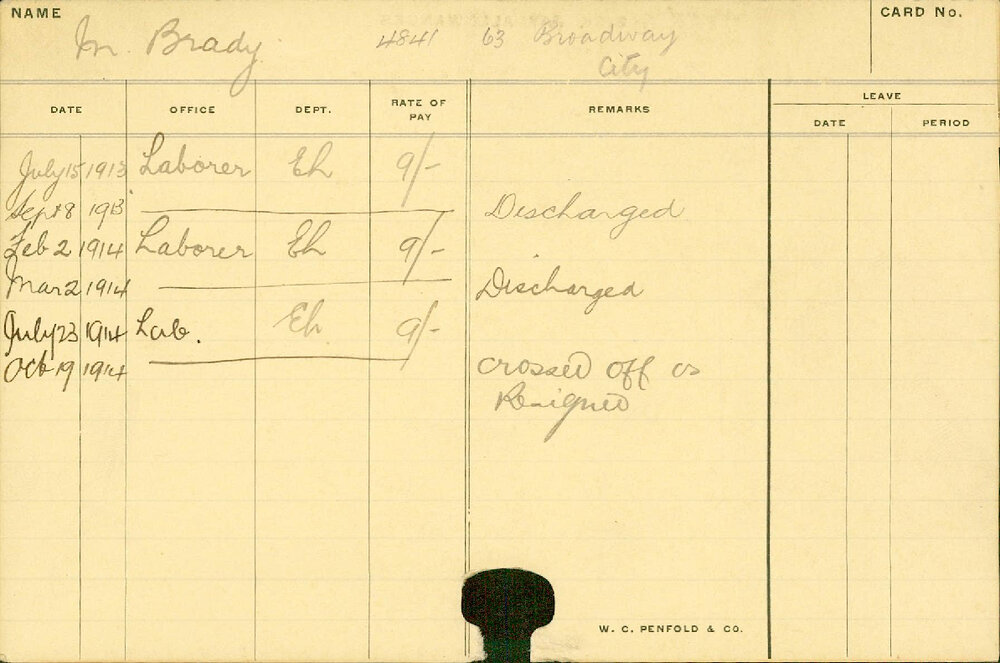 NAME
M. Brady 4841 63 Broadway
City
CARD No.
DATE OFFICE DEPT. RATE OF PAY REMARKS LEAVE
DATE PERIOD
July 15 1913 Laborer Eh 9/-
Sept 8 1913 Discharged
Feb 2 1914 Laborer Eh 9/-
Mar 2 1914 Discharged
July 23 1914 Lab. Eh 9/-
Oct 19 1914 crossed off as
Resigned
W. C. PENFOLD & CO.